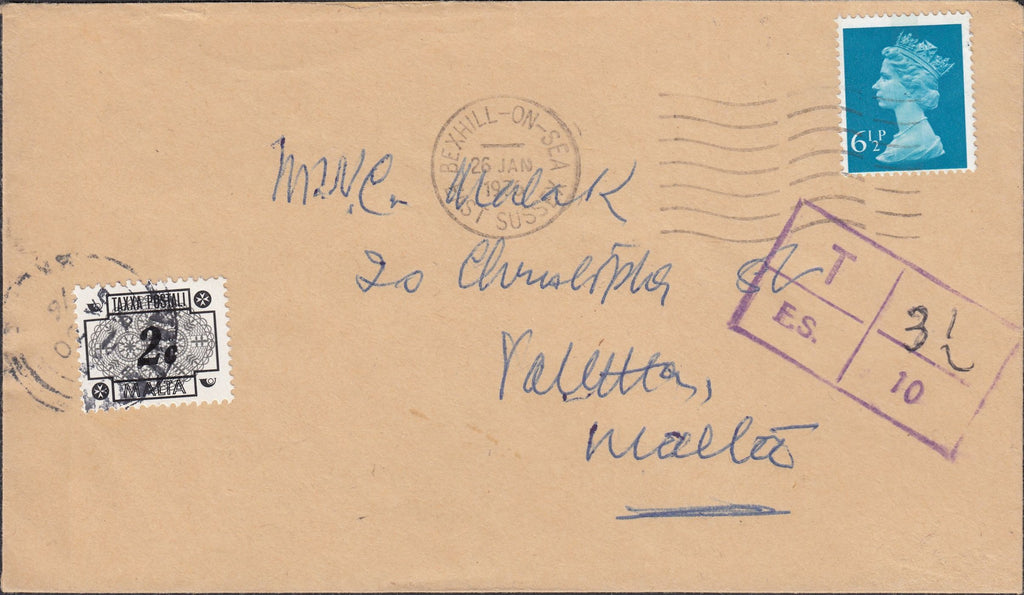 6½P
BEXHILL-ON-SEA
26 JAN
EAST SUSSEX
Mr. N.C. Malak
20 Christopher St
Valletta,
Malta
T
E.S.
3½
10
TAXXA POSTALI
2c
MALTA